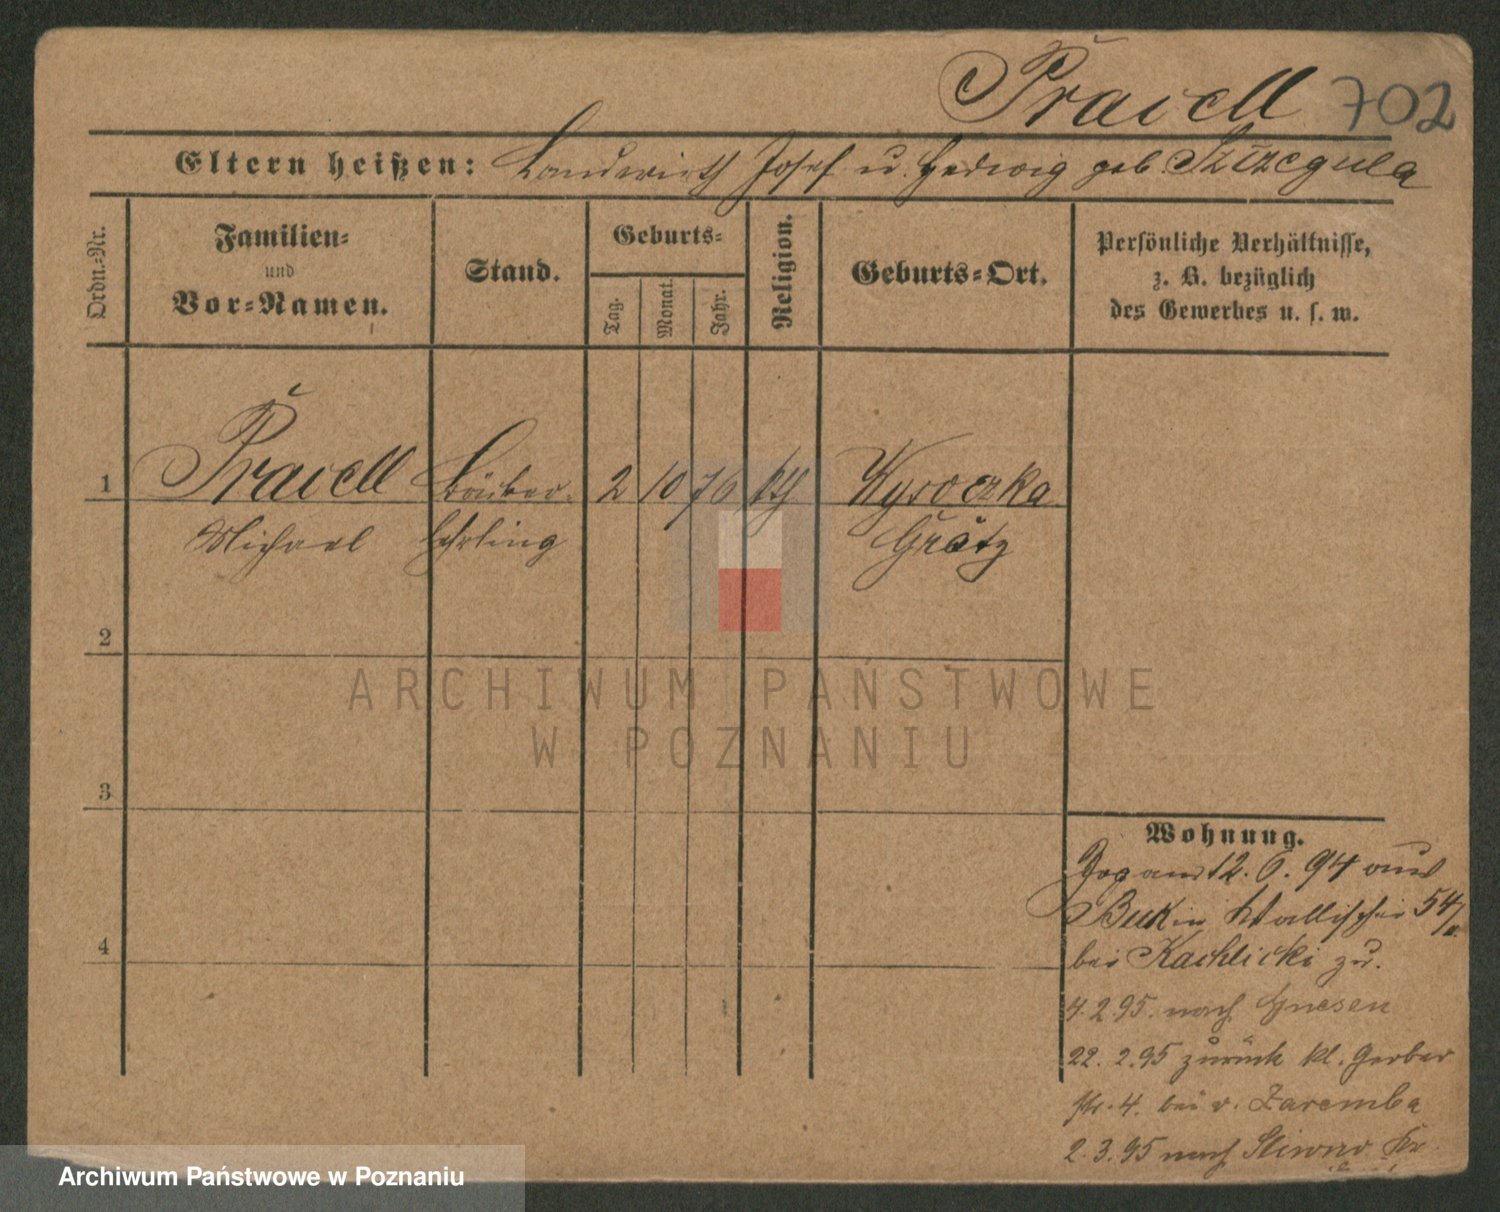 Pravcell 702
Eltern heißen: Landwirth Josef u. Hedwig geb.
Ordn.=Nr.
Familien=
und
Vor=Namen.
Stand.
Geburts=
Tag.
Monat.
Jahr.
Religion.
Geburts=Ort.
Persönliche Verhältnisse,
z. B. bezüglich
des Gewerbes u. s. w.
1 2 10 76 kth Wysoczka
Michael Lehrling Grätz
2
3
4
Wohnung.
am 12. 6. 94 aus
Buk in Wallischei 54/
bei Kachlicki zu.
4. 2. 95. nach Gnesen
22. 2. 95 zurück kl. Gerber
str. 4. bei v. Zaremba
2. 3. 95 nach
ARCHIWUM PAŃSTWOWE
W POZNANIU
Archiwum Państwowe w Poznaniu